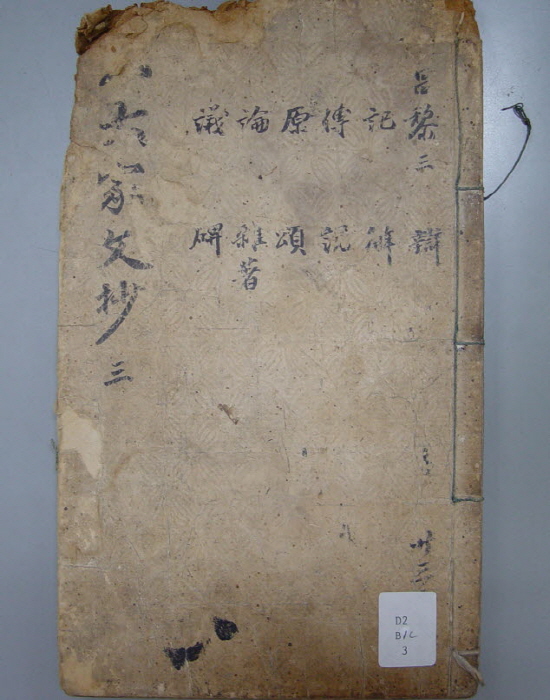 昌黎三 辯
記 解
傳 說
原 頌
論 雜著
議 碑
八大家文抄 三
D2
B12
3